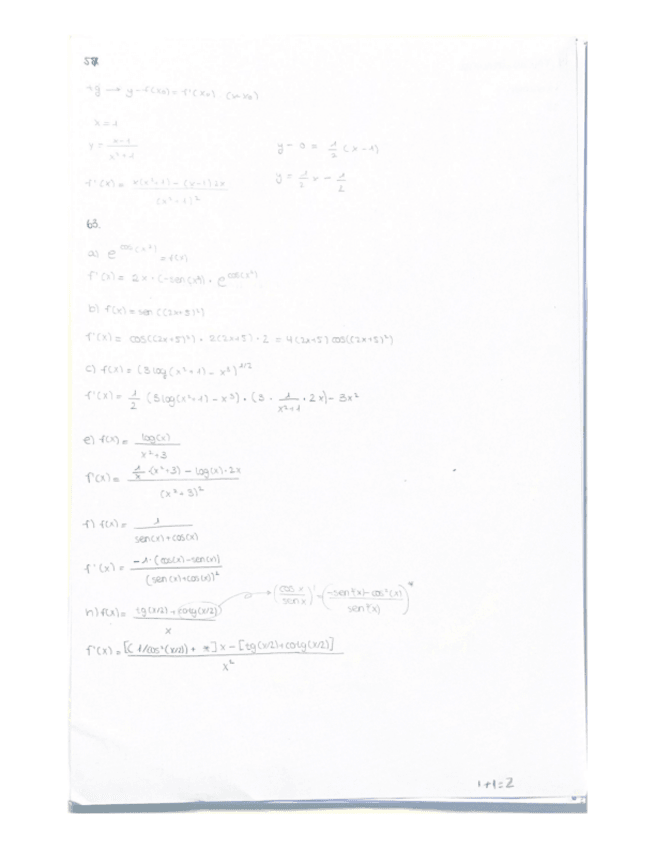 57
tg → y-f(x₀) = f'(x₀) · (x-x₀)
x=1
y = (x-1)/(x²+1)
y-0 = 1/2 (x-1)
y = 1/2 x - 1/2
f'(x) = (x(x²+1) - (x-1)2x)/(x²+1)²
63.
a) e^cos(x²) = f(x)
f'(x) = 2x · (-sen(x²)) · e^cos(x²)
b) f(x) = sen((2x+5)²)
f'(x) = cos((2x+5)²) · 2(2x+5) · 2 = 4(2x+5) cos((2x+5)²)
c) f(x) = (3log(x²+1) - x³)^1/2
f'(x) = 1/2 (3log(x²+1) - x³) · (3 · 1/(x²+1) · 2x) - 3x²
e) f(x) = log(x)/(x²+3)
f'(x) = (1/x · (x²+3) - log(x)·2x)/(x²+3)²
f) f(x) = 1/(sen(x)+cos(x))
f'(x) = -1·(cos(x)-sen(x))/(sen(x)+cos(x))²
h) f(x) = (tg(x/2)+cotg(x/2))/x → (cos x/sen x)' = ((-sen²(x)-cos²(x))/sen²(x))*
f'(x) = ([(1/cos²(x/2)) + *]x - [tg(x/2)+cotg(x/2)])/x²
1+1=2